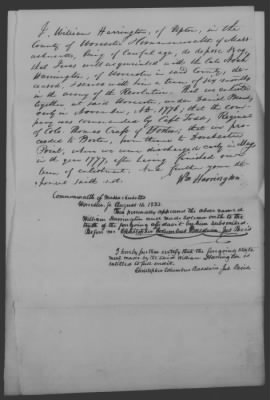 I, William Harrington, of Upton, in the
County of Worcester & Commonwealth of Mass
achusetts, being of lawful age, do depose & say,
that I was well acquainted with the late Noah
Harrington, of Worcester in said County, de-
ceased, & served with him a term of six months
in the army of the Revolution. That we enlisted
together at said Worcester, under Daniel
early in November, A.D. 1776, that the com-
pany was commanded by Capt. Todd, Regiment
of Col. Thomas Craft of Boston; that we pro-
ceeded to Boston, from thence to Dorchester
Point, where we were discharged early in May
in the year 1777, after having finished our
term of enlistment. And further your de-
ponent saith not.
Wm Harrington
Commonwealth of Massachusetts
Worcester, ss. August 16. 1832.
Then personally appeared the above named
William Harrington and made solemn oath to the
truth of the foregoing affidavit by him subscribed.
Before me Christopher Columbus Baldwin Jus. Pacis
I hereby further certify that the foregoing state-
ment made by the said William Harrington is
entitled to full credit.
Christopher Columbus Baldwin Jus. Pacis